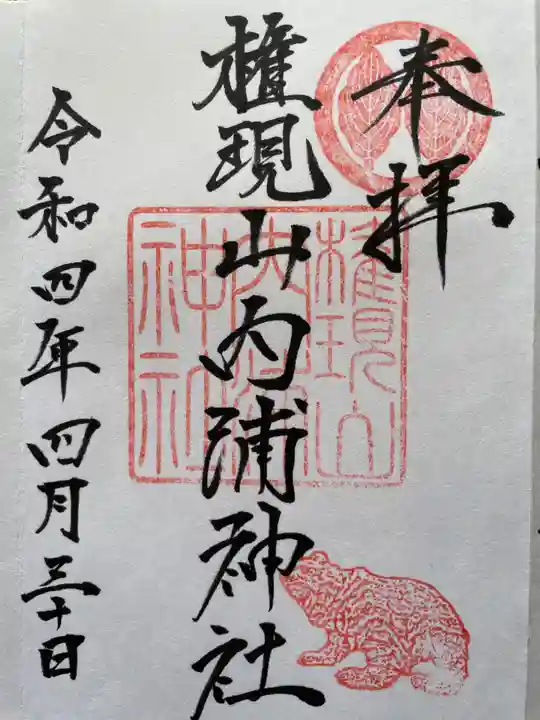 奉拝
権現山内浦神社
権現山
内浦
神社
令和四年四月三十日